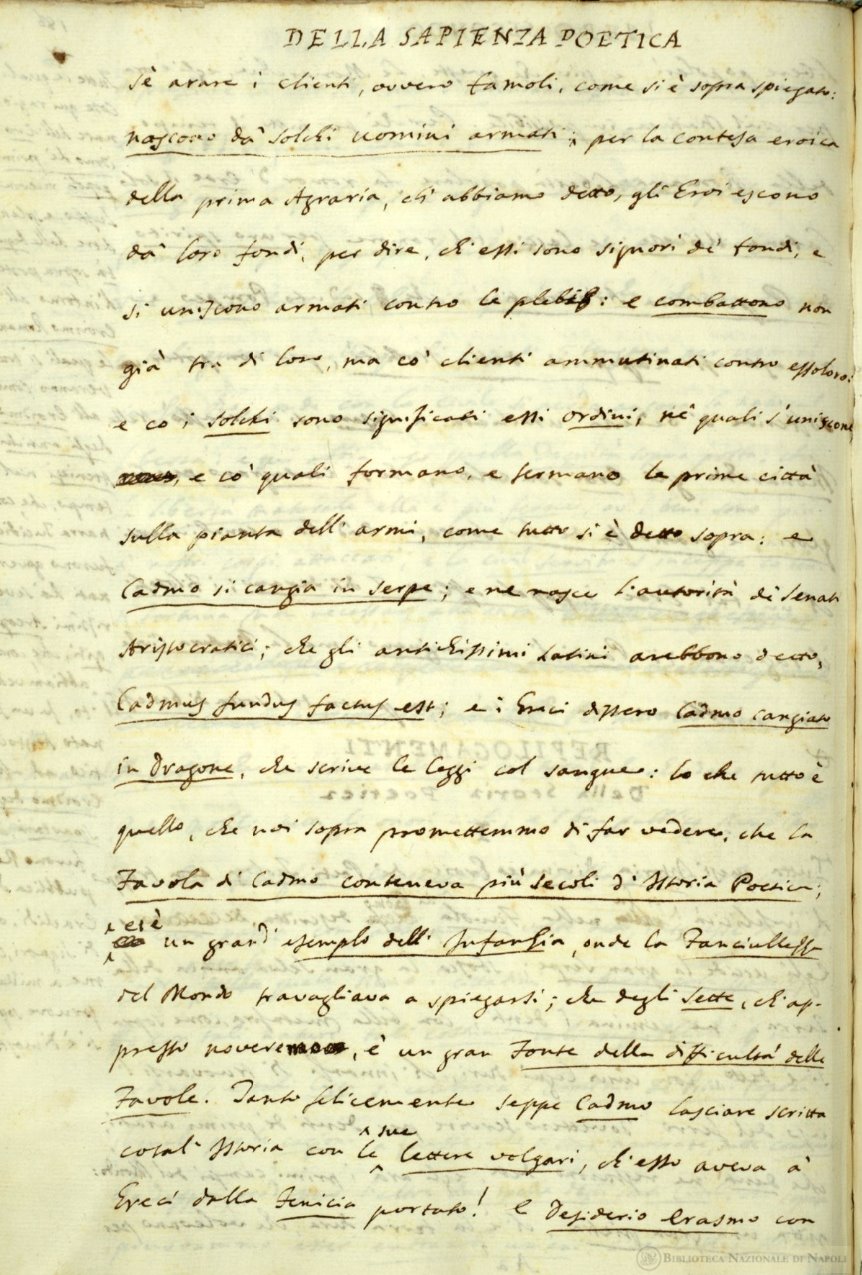 DELLA SAPIENZA POETICA
sè arare i clienti, ovvero famoli, come si è sopra spiegato:
nascono da' solchi uomini armati; per la contesa eroica
della prima Agraria, ch'abbiamo detto, gli Eroi escono
da' loro fondi, per dire, ch'essi sono signori de' fondi, e
si uniscono armati contro le plebi: e combattono non
già tra di loro, ma co' clienti ammutinati contro essoloro:
e co i solchi sono significati essi ordini, ne' quali s'uniscono
e co' quali formano, e fermano le prime città
sulla pianta dell'armi, come tutto si è detto sopra: e
Cadmo si cangia in serpe; e ne nasce l'autorità de' Senati
Aristocratici; che gli antichissimi Latini arebbono detto,
Cadmus fundus factus est; e i Greci dissero Cadmo cangiato
in Dragone, che scrive le leggi col sangue: lo che tutto è
quello, che noi sopra promettemmo di far vedere, che la
Favola di Cadmo conteneva più secoli d'Istoria Poetica;
ed è un grand'esempio dell'Infanzia, onde la Fanciullezza
del Mondo travagliava a spiegarsi; che degli Sette, ch'ap-
presso noveremo, è un gran Fonte della difficultà delle
Favole. Tanto felicemente seppe Cadmo lasciare scritta
cotal'Istoria con le sue lettere volgari, ch'esso aveva a'
Greci dalla Fenicia portato! E Desiderio Erasmo con
BIBLIOTECA NAZIONALE DI NAPOLI